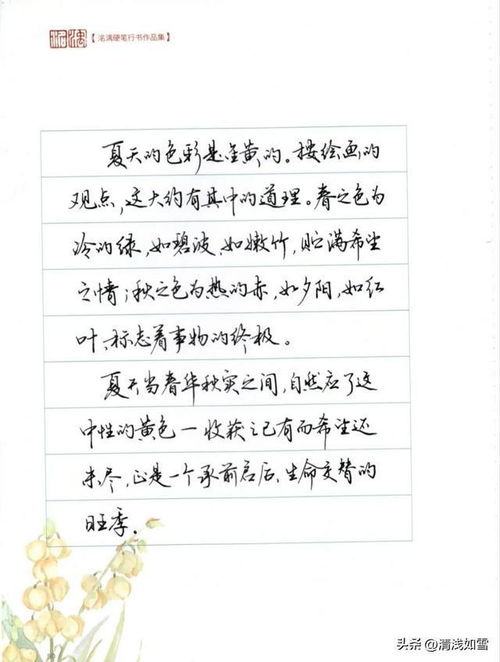 【洺溝硬笔行书作品集】
夏天的色彩是金黄的。按绘画的
观点,这大约有其中的道理。春之色为
冷的绿,如碧波,如嫩竹,贮满希望
之情;秋之色为热的赤,如夕阳,如红
叶,标志着事物的终极。
夏天当春华秋实之间,自然应了这
中性的黄色—收获之已有而希望还
未尽,正是一个承前启后,生命交替的
旺季。
头条 @清浅如雪